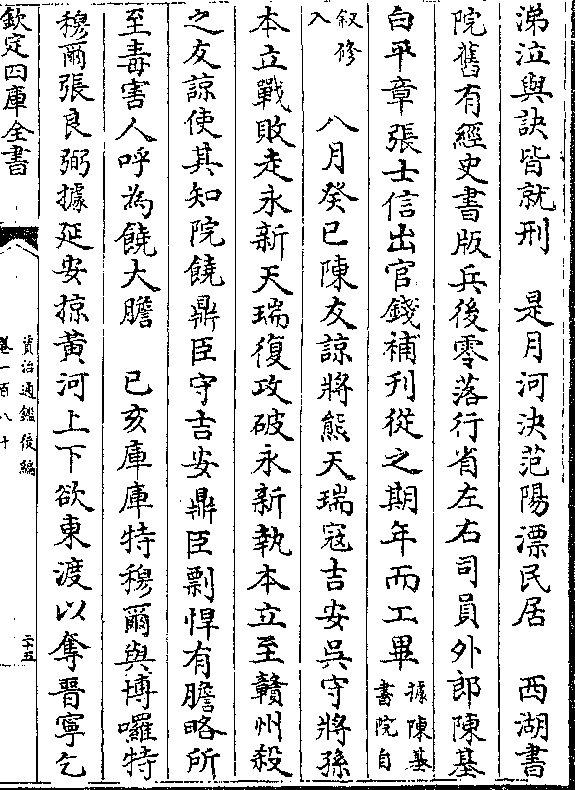 涕泣與訣皆就刑　是月河決范陽漂民居　西湖書
院舊有經史書版兵後零落行省左右司員外郎陳基
白平章張士信出官錢補刊從之期年而工畢據陳基書院自
叙修入　八月癸巳陳友諒將熊天瑞寇吉安吳守將孫
本立戰敗走永新天瑞復攻破永新執本立至贛州殺
之友諒使其知院饒鼎臣守吉安鼎臣剽悍有膽略所
至毒害人呼為饒大膽　己亥庫庫特穆爾與博囉特
穆爾張良弼據延安掠黃河上下欲東渡以奪晉寧乞
欽定四庫全書
資治通鑑後編
卷一百八十
二十五